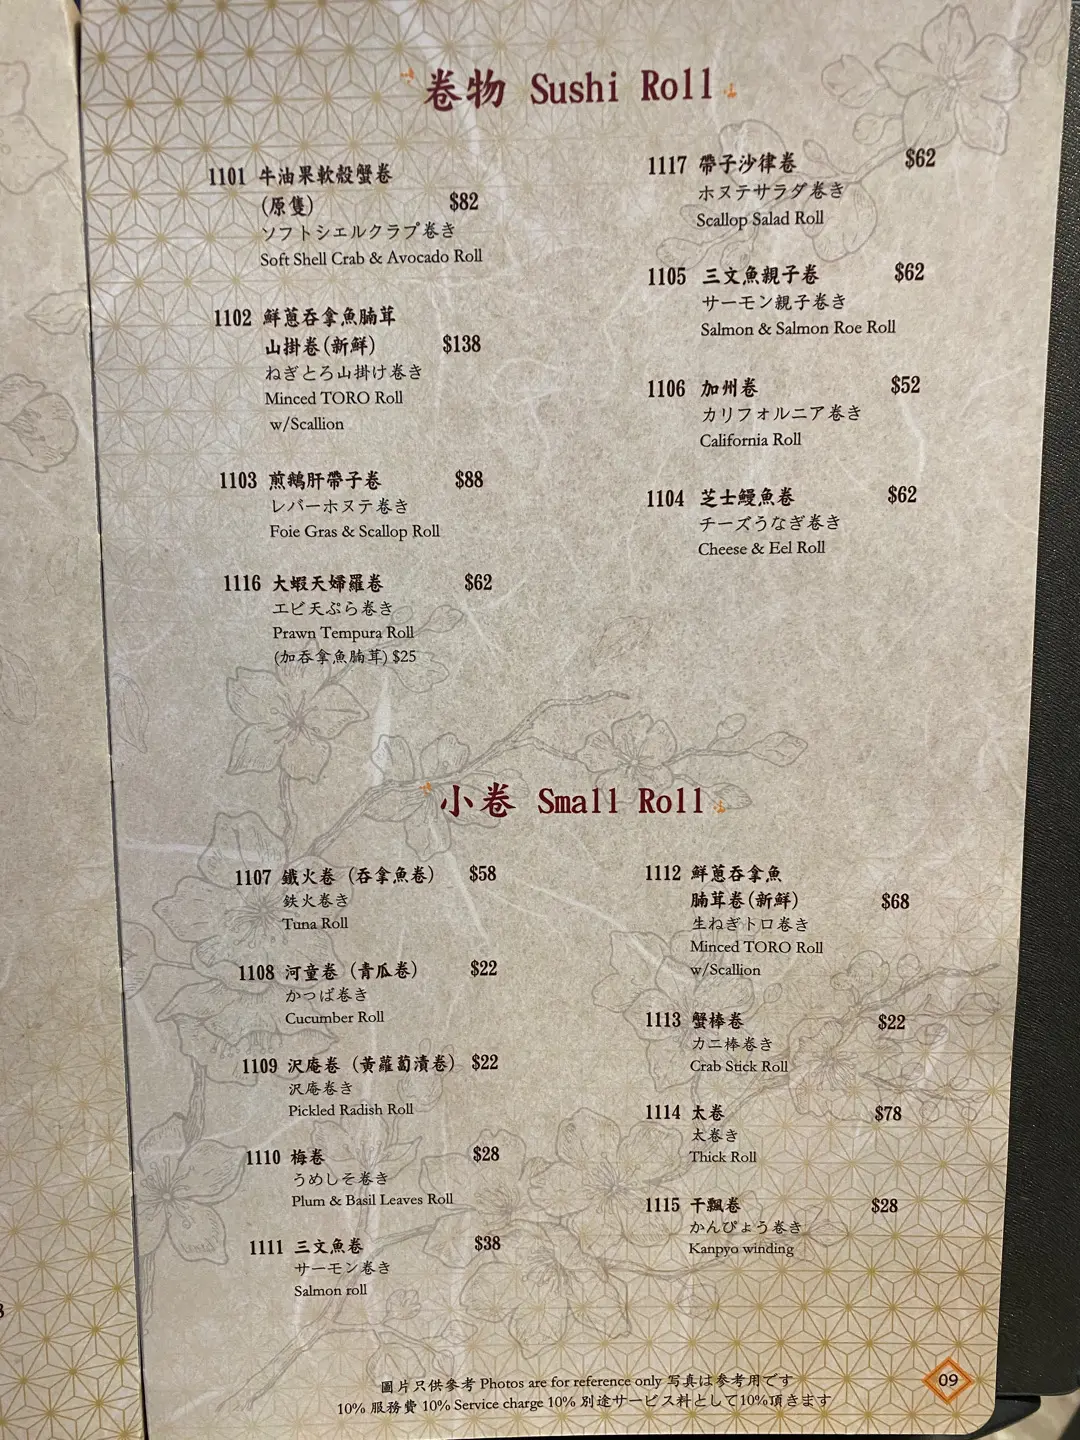 卷物 Sushi Roll
1101 牛油果軟殼蟹卷
(原隻) $82
ソフトシエルクラプ巻き
Soft Shell Crab & Avocado Roll
1102 鮮蔥吞拿魚腩茸
山掛卷(新鮮) $138
ねぎとろ山掛け巻き
Minced TORO Roll
w/Scallion
1103 煎鵝肝帶子卷 $88
レバーホヌテ巻き
Foie Gras & Scallop Roll
1116 大蝦天婦羅卷 $62
エビ天ぷら巻き
Prawn Tempura Roll
(加吞拿魚腩茸) $25
1117 帶子沙律卷 $62
ホヌテサラダ巻き
Scallop Salad Roll
1105 三文魚親子卷 $62
サーモン親子巻き
Salmon & Salmon Roe Roll
1106 加州卷 $52
カリフォルニア巻き
California Roll
1104 芝士鰻魚卷 $62
チーズうなぎ巻き
Cheese & Eel Roll
小卷 Small Roll
1107 鐵火卷 (吞拿魚卷) $58
鉄火巻き
Tuna Roll
1108 河童卷 (青瓜卷) $22
かっぱ巻き
Cucumber Roll
1109 沢庵卷 (黃蘿蔔漬卷) $22
沢庵巻き
Pickled Radish Roll
1110 梅卷 $28
うめしそ巻き
Plum & Basil Leaves Roll
1111 三文魚卷 $38
サーモン巻き
Salmon roll
1112 鮮蔥吞拿魚
腩茸卷(新鮮) $68
生ねぎトロ巻き
Minced TORO Roll
w/Scallion
1113 蟹棒卷 $22
カニ棒巻き
Crab Stick Roll
1114 太卷 $78
太巻き
Thick Roll
1115 干瓢卷 $28
かんぴょう巻き
Kanpyo winding
圖片只供參考 Photos are for reference only 写真は参考用です
10% 服務費 10% Service charge 10% 別途サービス料として10%頂きます
09